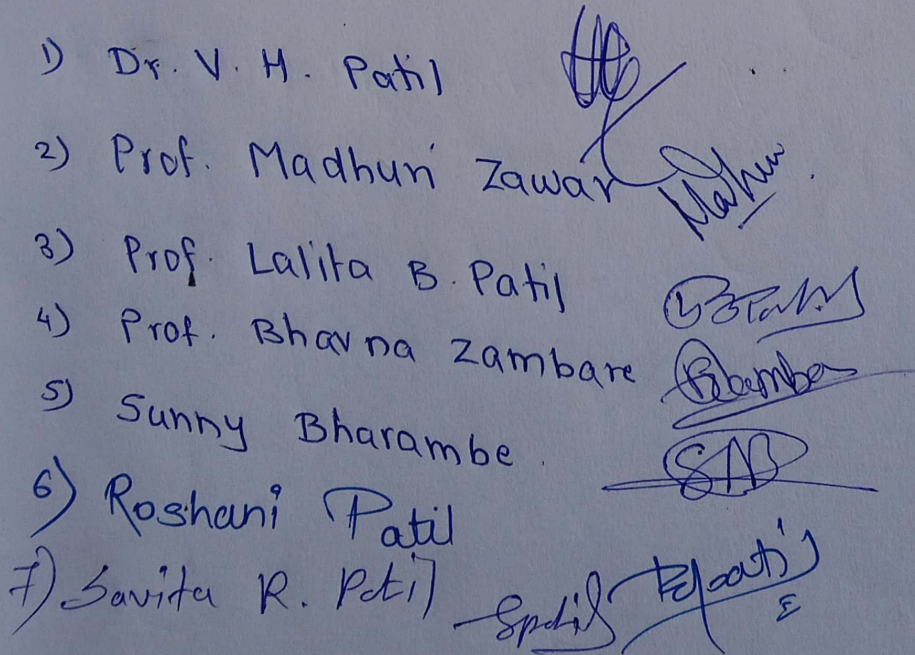 1) Dr. V. H. Patil
2) Prof. Madhuri Zawar
3) Prof. Lalita B. Patil
4) Prof. Bhavna Zambare
5) Sunny Bharambe.
6) Roshani Patil
7) Savita R. Patil Spatil